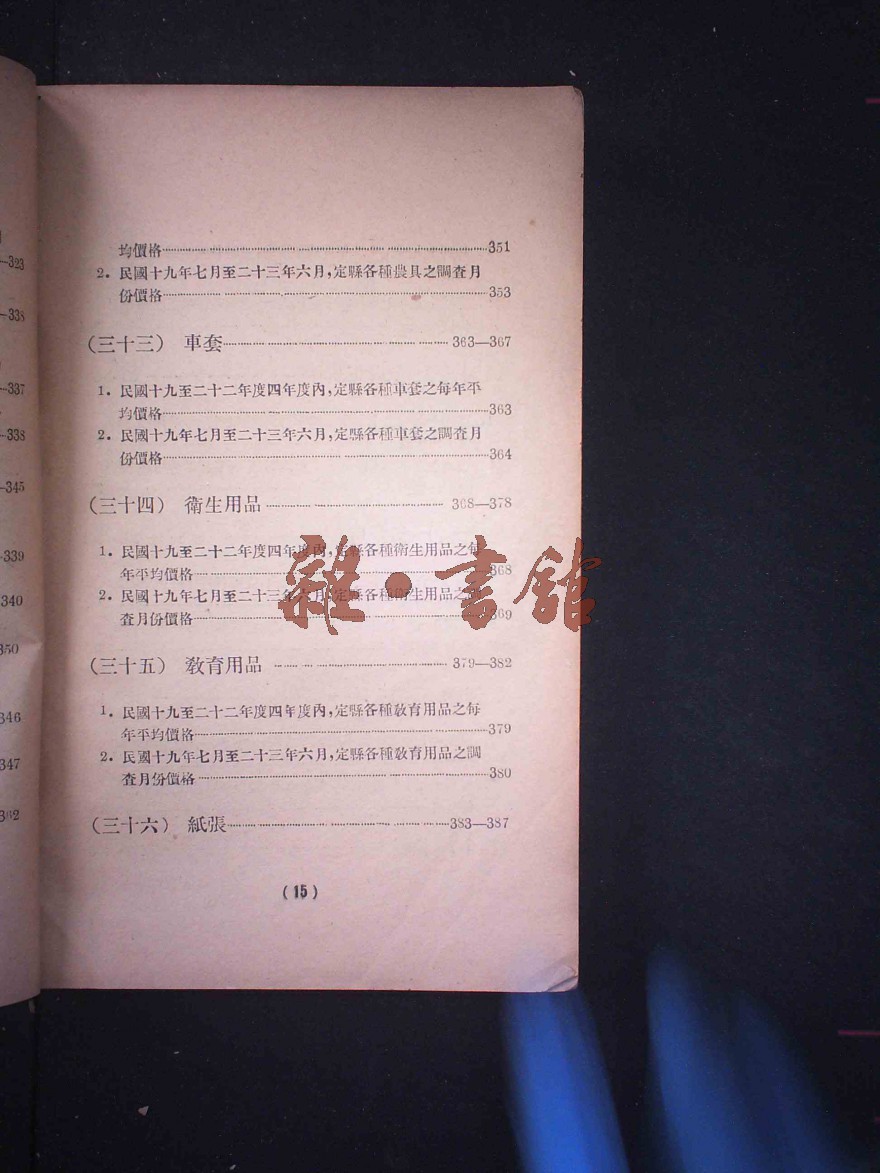 均價格⋯⋯351
2. 民國十九年七月至二十三年六月,定縣各種農具之調査月
份價格⋯⋯353
(三十三) 車套⋯⋯363—367
1. 民國十九至二十二年度四年度內,定縣各種車套之每年平
均價格⋯⋯363
2. 民國十九年七月至二十三年六月,定縣各種車套之調査月
份價格⋯⋯364
(三十四) 衛生用品⋯⋯368—378
1. 民國十九至二十二年度四年度內,定縣各種衛生用品之每
年平均價格⋯⋯368
2. 民國十九年七月至二十三年六月,定縣各種衛生用品之調
査月份價格⋯⋯369
(三十五) 敎育用品⋯⋯379—382
1. 民國十九至二十二年度四年度內,定縣各種敎育用品之每
年平均價格⋯⋯379
2. 民國十九年七月至二十三年六月,定縣各種敎育用品之調
査月份價格⋯⋯380
(三十六) 紙張⋯⋯383—387
(15)
雜·書館
—323
—338
—337
—338
—345
339
340
350
346
347
362